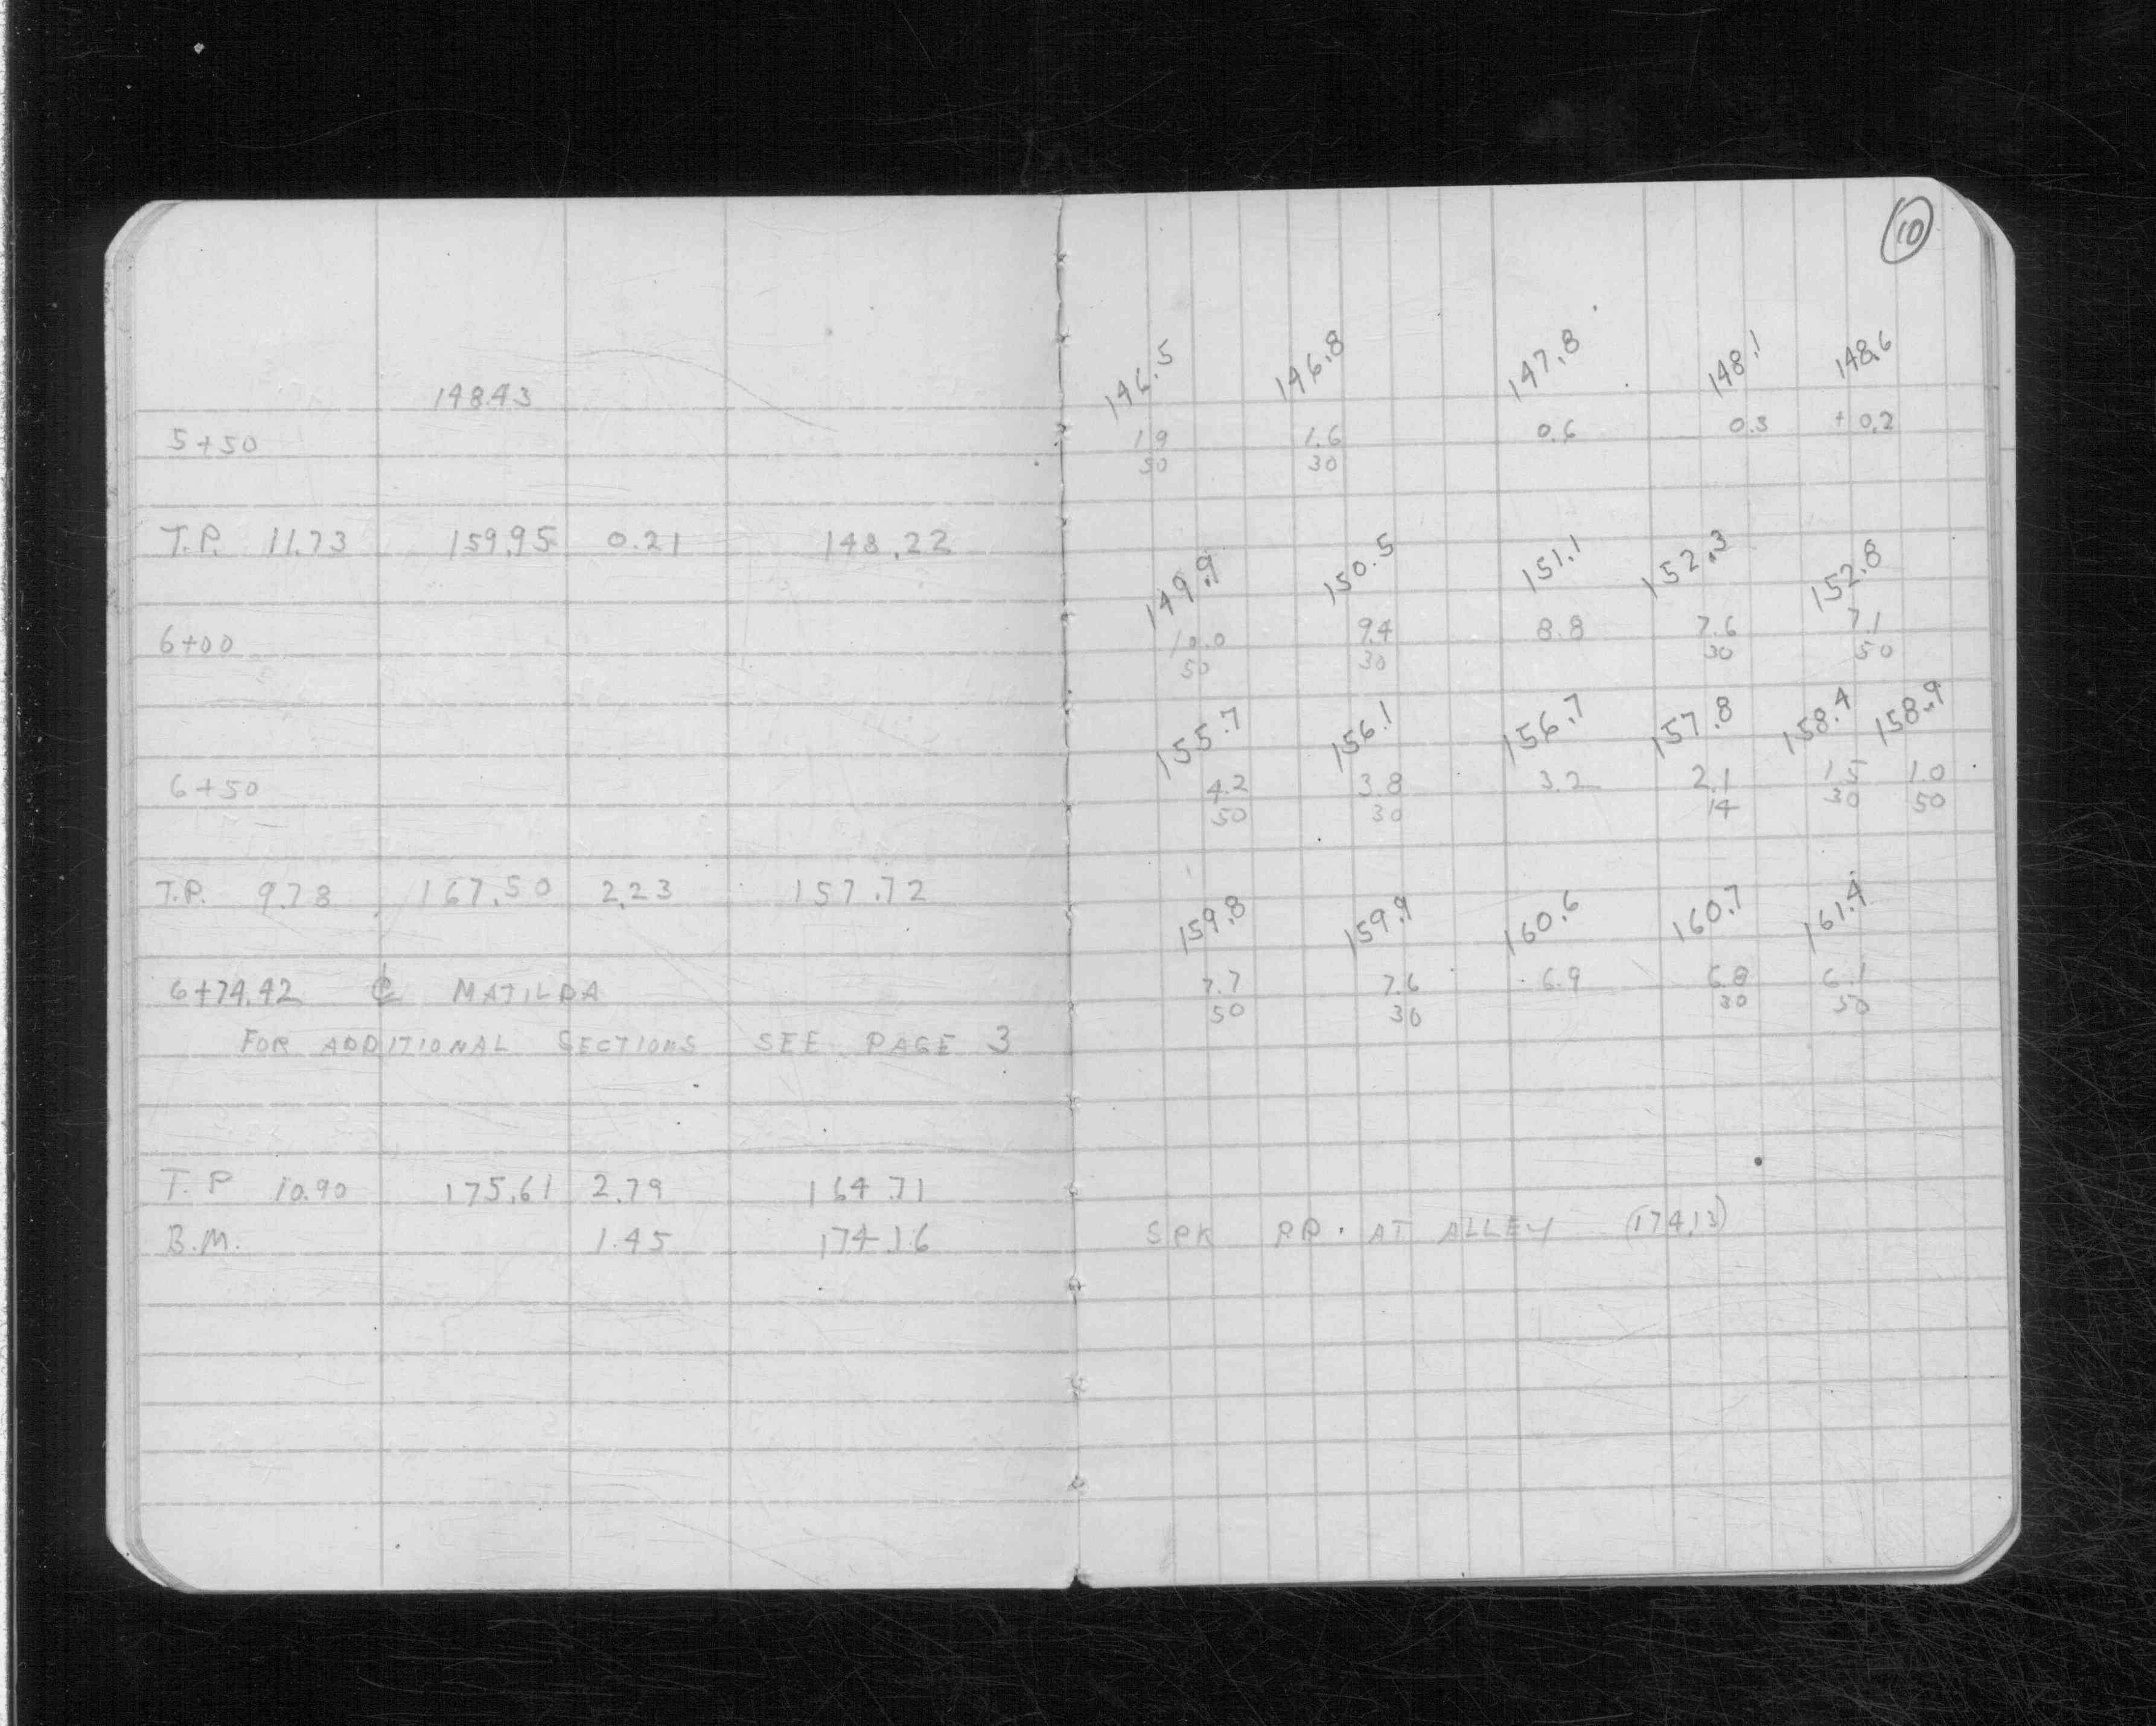 10
148.43
146.5 146.8 147.8 148.1 148.6
5+50 1.9 1.6 0.6 0.3 +0.2
50 30
T.P. 11.73 159.95 0.21 148.22
149.9 150.5 151.1 152.3 152.8
6+00 10.0 9.4 8.8 7.6 7.1
50 30 30 50
155.7 156.1 156.7 157.8 158.4 158.9
6+50 4.2 3.8 3.2 2.1 1.5 1.0
50 30 14 30 50
T.P. 9.78 167.50 2.23 157.72
159.8 159.9 160.6 160.7 161.4
6+74.42 ℄ MATILDA 7.7 7.6 6.9 6.8 6.1
50 30 30 50
FOR ADDITIONAL SECTIONS SEE PAGE 3
T.P 10.90 175.61 2.79 164.71
B.M. 1.45 174.16 SPK PP. AT ALLEY (174.13)